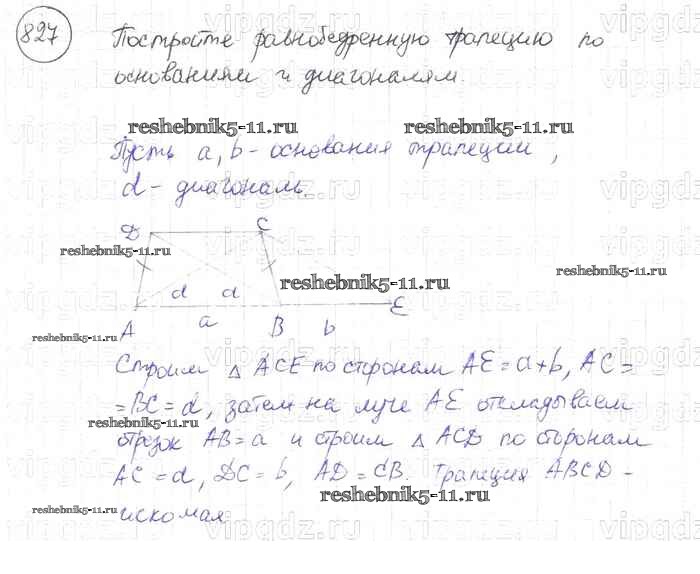 827
Постройте равнобедренную трапецию по
основаниям и диагоналям.
reshebnik5-11.ru reshebnik5-11.ru
Пусть a, b - основания трапеции,
d - диагональ.
D C
reshebnik5-11.ru
reshebnik5-11.ru
reshebnik5-11.ru
d d
A a B b E
reshebnik5-11.ru
Строим △ ACE по сторонам AE = a+b, AC =
= BC = d, затем на луче AE откладываем
reshebnik5-11.ru
отрезок AB = a и строим △ ACD по сторонам
AC = d, DC = b, AD = CB. Трапеция ABCD -
reshebnik5-11.ru
искомая
reshebnik5-11.ru
vipgdz.ru